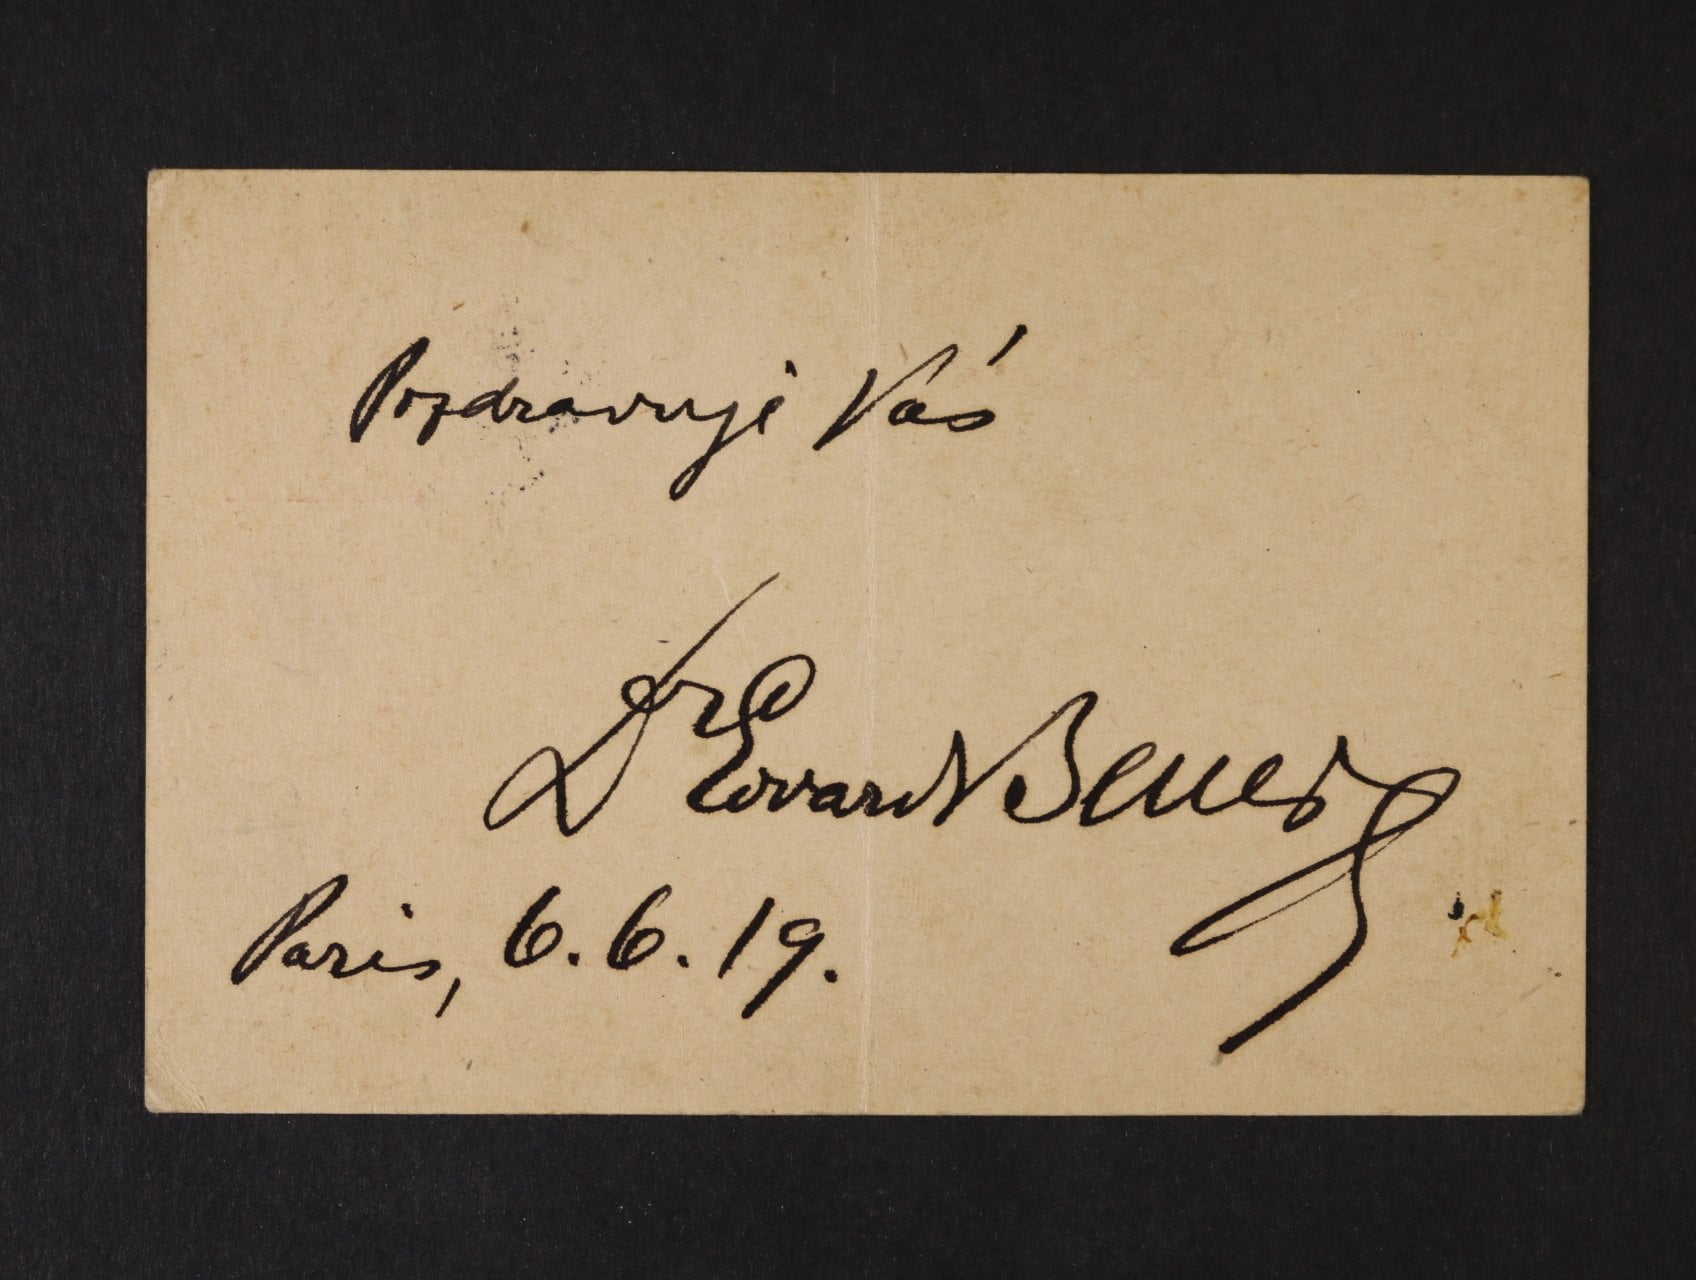 Pozdravuje Vás
Dr Edvard Beneš
Paris, 6. 6. 19.